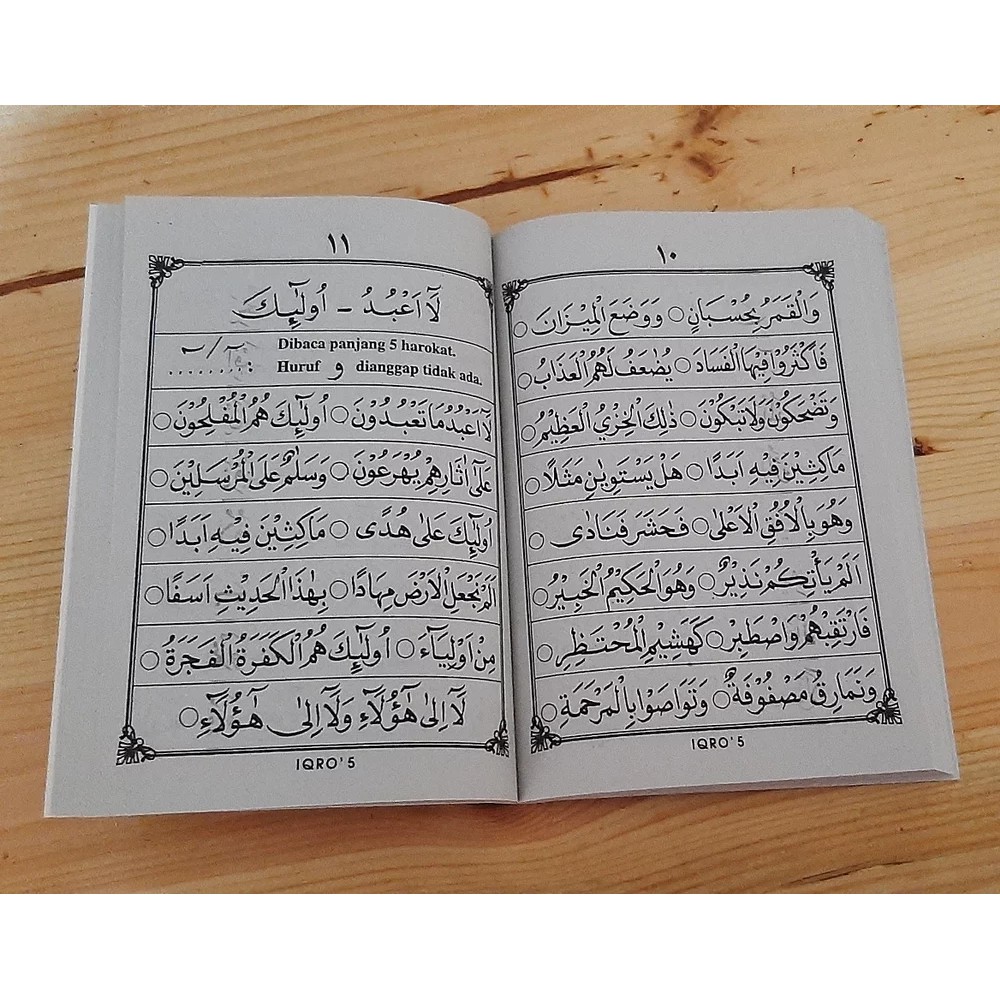 ١٠
وَالْقَمَرُ بِحُسْبَانٍ ○ وَوَضَعَ الْمِيْزَانَ ○
فَاَكْثَرُوْا فِيْهَا الْفَسَادَ ○ يُضٰعَفُ لَهُمُ الْعَذَابُ ○
وَتَضْحَكُوْنَ وَلَا تَبْكُوْنَ ○ ذٰلِكَ الْخِزْيُ الْعَظِيْمُ ○
مَاكِثِيْنَ فِيْهِ اَبَدًا ○ هَلْ يَسْتَوِيٰنِ مَثَلًا ○
وَهُوَ بِالْاُفُقِ الْاَعْلٰى ○ فَحَشَرَ فَنَادٰى ○
اَلَمْ يَأْتِكُمْ نَذِيْرٌ ○ وَهُوَ الْحَكِيْمُ الْخَبِيْرُ ○
فَارْتَقِبْهُمْ وَاصْطَبِرْ ○ كَهَشِيْمِ الْمُحْتَظِرِ ○
وَنَمَارِقُ مَصْفُوْفَةٌ ○ وَتَوَاصَوْا بِالْمَرْحَمَةِ ○
IQRO' 5
١١
لَآ اَعْبُدُ - اُولٰٓئِكَ
Dibaca panjang 5 harokat.
Huruf و dianggap tidak ada.
لَآ اَعْبُدُ مَا تَعْبُدُوْنَ ○ اُولٰٓئِكَ هُمُ الْمُفْلِحُوْنَ ○
عَلٰٓى اٰثَارِهِمْ يُهْرَعُوْنَ ○ وَسَلٰمٌ عَلَى الْمُرْسَلِيْنَ ○
اُولٰٓئِكَ عَلٰى هُدًى ○ مَاكِثِيْنَ فِيْهِ اَبَدًا ○
اَلَمْ نَجْعَلِ الْاَرْضَ مِهَادًا ○ بِهٰذَا الْحَدِيْثِ اَسَفًا ○
مِنْ اَوْلِيَآءَ ○ اُولٰٓئِكَ هُمُ الْكَفَرَةُ الْفَجَرَةُ ○
لَآ اِلٰى هٰٓؤُلَآءِ وَلَآ اِلٰى هٰٓؤُلَآءِ ○
IQRO' 5